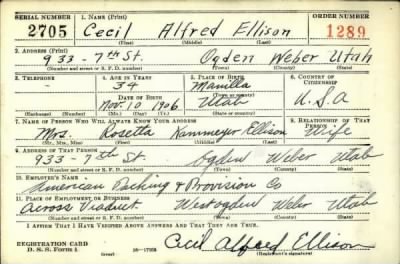 SERIAL NUMBER 1. NAME (Print) ORDER NUMBER
2705 Cecil Alfred Ellison 1289
(First) (Middle) (Last)
2. ADDRESS (Print)
933 - 7th St. Ogden Weber Utah
(Number and street or R. F. D. number) (Town) (County) (State)
3. TELEPHONE 4. AGE IN YEARS 5. PLACE OF BIRTH 6. COUNTRY OF CITIZENSHIP
- 34 Manilla
DATE OF BIRTH (Town or county)
Nov. 10 1906 Utah U.S.A
(Exchange) (Number) (Mo.) (Day) (Yr.) (State or country)
7. NAME OF PERSON WHO WILL ALWAYS KNOW YOUR ADDRESS 8. RELATIONSHIP OF THAT PERSON
Mrs. Rosetta Kammeyer Ellison Wife
(Mr., Mrs., Miss) (First) (Middle) (Last)
9. ADDRESS OF THAT PERSON
933 - 7th St. Ogden Weber Utah
(Number and street or R. F. D. number) (Town) (County) (State)
10. EMPLOYER'S NAME
American Packing & Provision Co
11. PLACE OF EMPLOYMENT OR BUSINESS
Across Viaduct. West ogden Weber Utah
(Number and street or R. F. D. number) (Town) (County) (State)
I AFFIRM THAT I HAVE VERIFIED ABOVE ANSWERS AND THAT THEY ARE TRUE.
REGISTRATION CARD
D. S. S. Form 1. Cecil Alfred Ellison
(Registrant's signature)